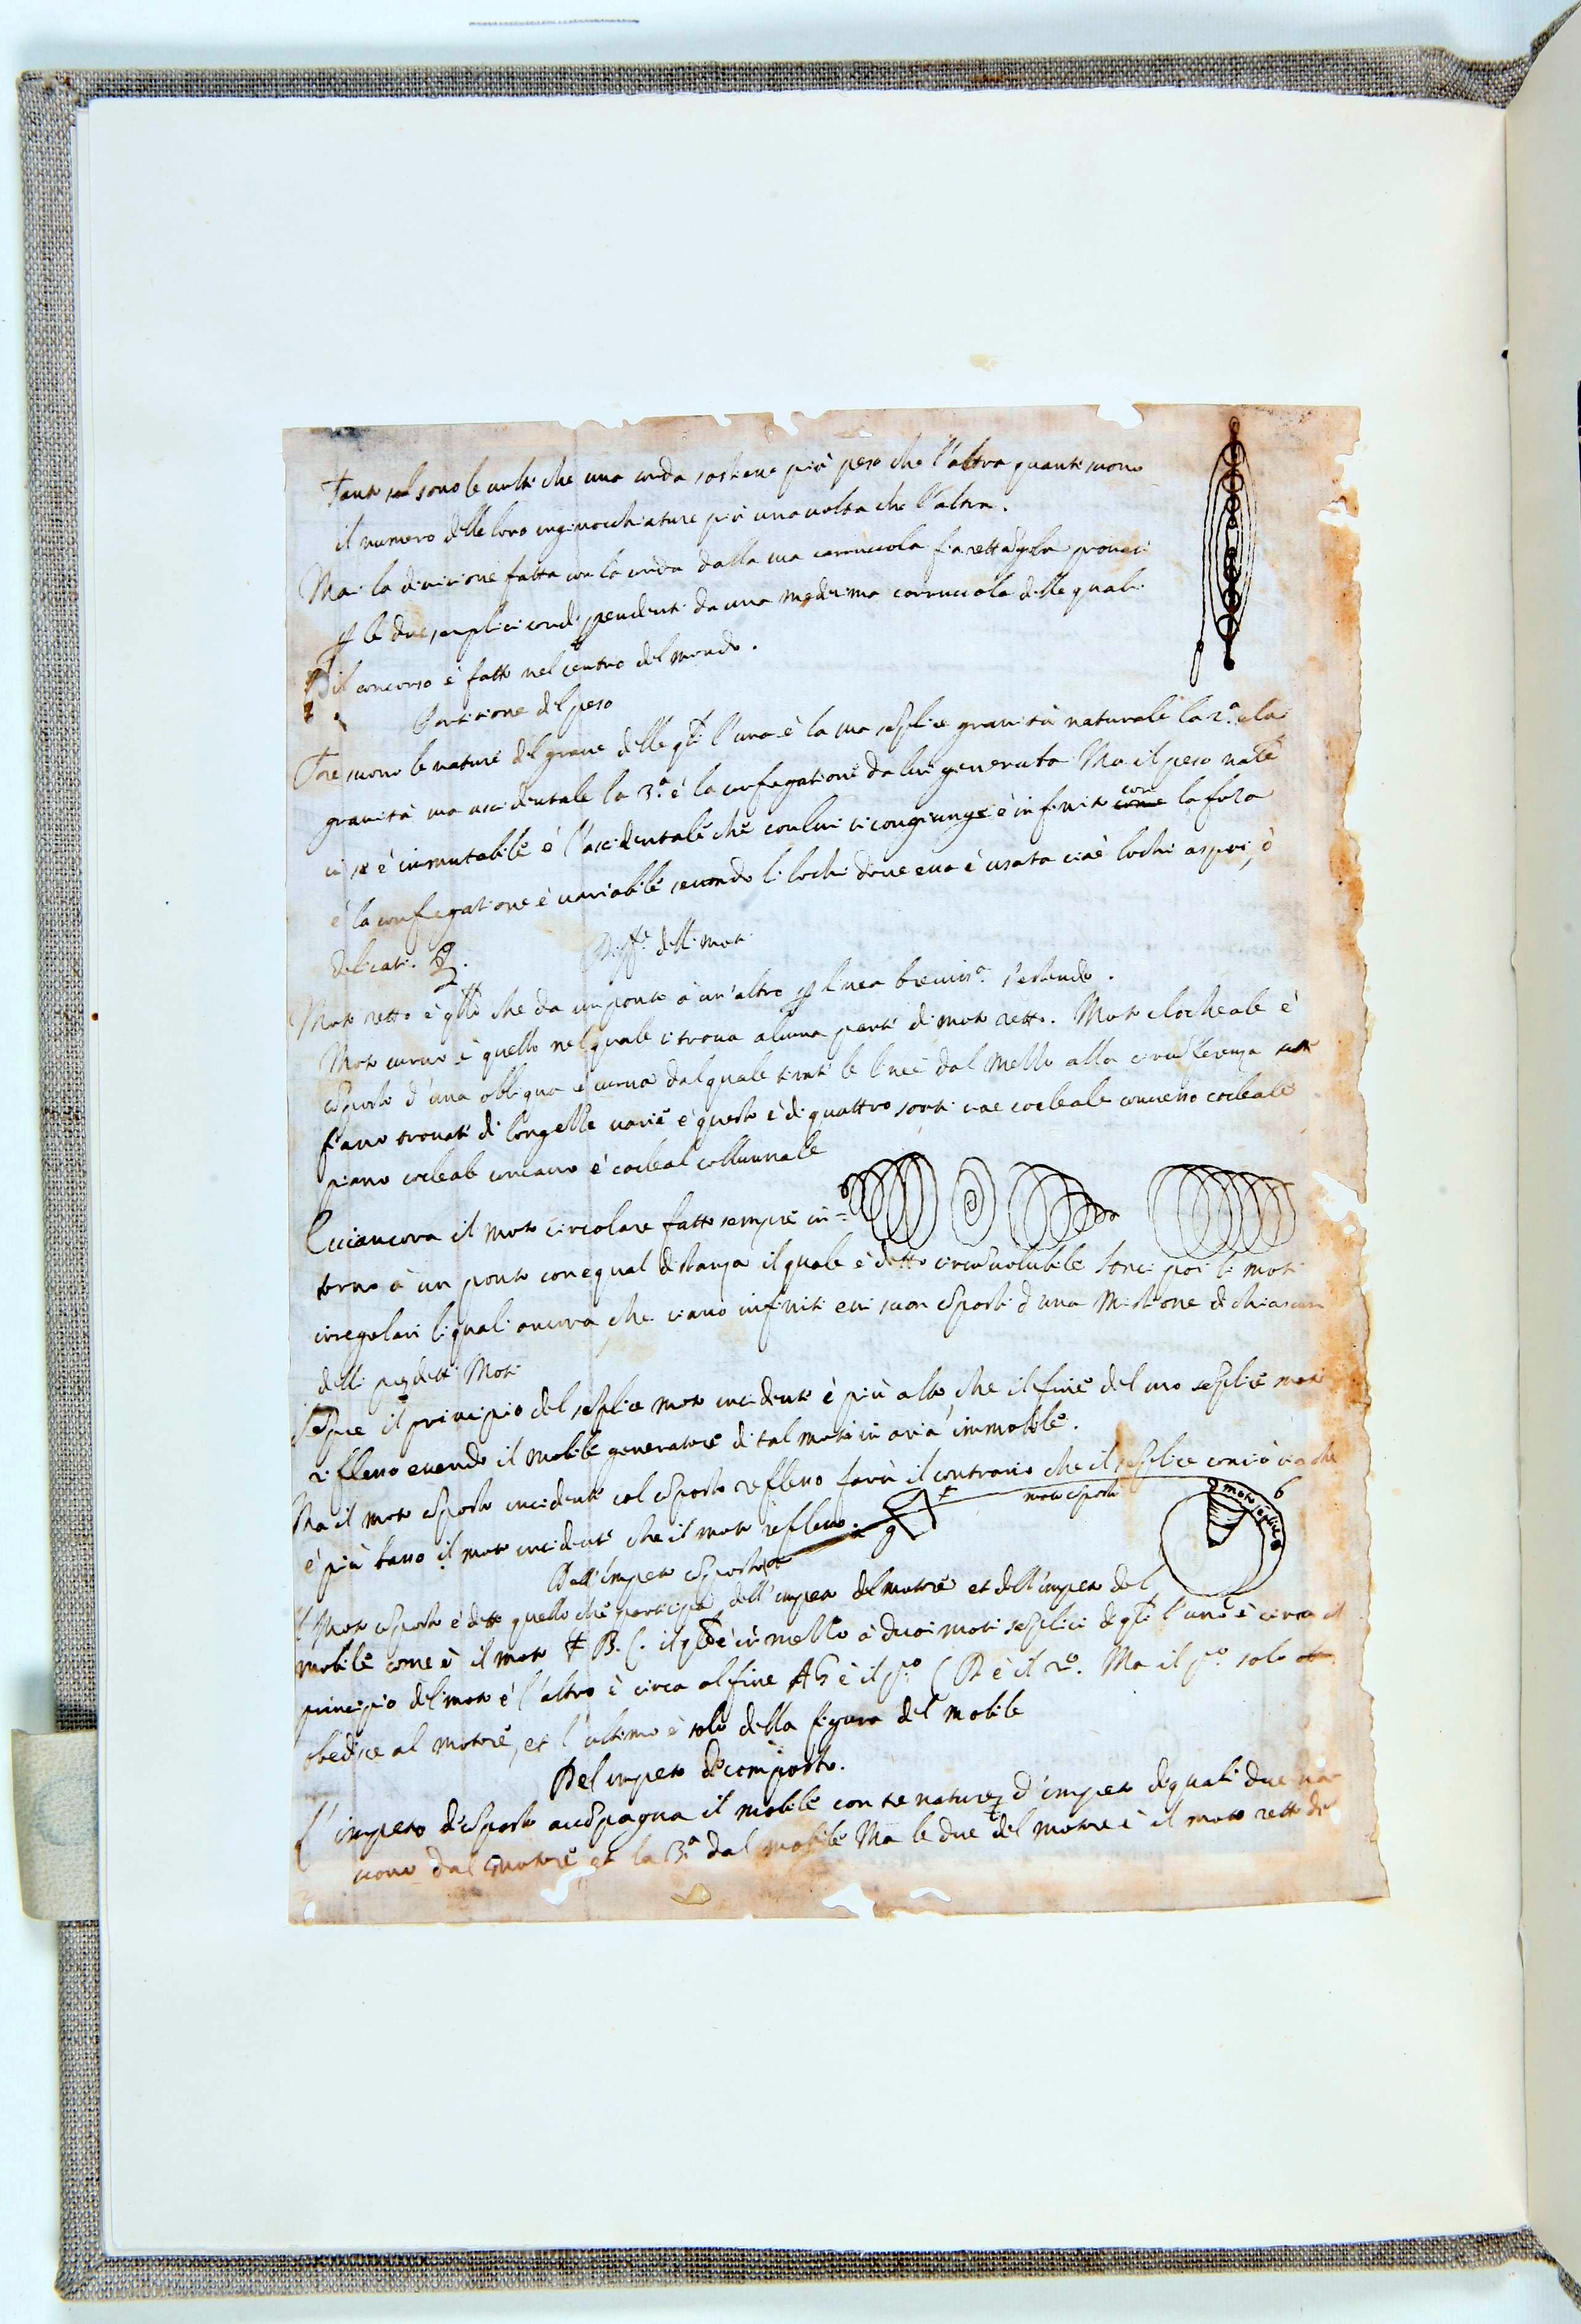 Tanto sol sono le volte che una corda sostiene più peso che l'altra quanti siano
il numero delle loro inginocchiature più una volta che l'altra.
Mai la divisione fatta con la corda dalla sua carruccola fia rettãgola provasi
ꝑ le due semplici corde pendenti da una medesima carruccola delle quali
il concorso è fatto nel centro del mondo.
Partitione del peso
Tre siano le nature del grave delle qli l'una è la sua seplice gravità naturale la 2.ª è la
gravità sua accidentale la 3.ª è la confegatione da lui generata Ma il peso nāle
in se è immutabile è l'accidentale che con lui si congiunge è infinito come con la forza
è la confegatione è variabile secondo li lochi dove essa è usata cioè lochi aspri, ò
delicati.
Diffe delli moti
Moto retto è qllo che da un ponto à un'altro ꝑ linea brevissª s'estende.
Moto curvo è quello nel quale si trova alcuna parte di moto retto. Moto clocheale è
cōposto d'una obbliqua e curva dal quale tirate le linee dal mezzo alla circūferenza
fiano trovate di longezze varie è questo è di quattro sorti cioe cocleale convesso cocleale
piano cocleale concavo è cocleal collunnale
Ecci ancora il moto circolare fatto sempre in=
torno à un ponto con equal distanza il quale è detto circūvolubile Sonci poi li moti
irregolari li quali ancora, che siano infiniti essi son cōposti d'una mistione di chiascun
delli predetti Moti
Sepre il principio del seplice moto incidente è più alto, che il fine del suo seplice moto
riflesso essendo il mobile generatore di tal moto in aria immobile.
Ma il moto cōposto incidente col cōposto reflesso farà il contrario che il seplice conciò sia che
è più basso il moto incidente che il moto reflesso.
moto cōposto
moto seplice
Dell'impeto cōposto
Il Moto cōposto è detto quello che participa dell'impeto del motore et dell'impeto del
mobile come è il moto F. B. C. il qle è in mezzo à duoi moti seplici de qli l'uno è circa il
principio del moto è l'altro è circa al fine A G è il pº C B è il 2º. Ma il pº solo
obedisce al motore, et l'ultimo è solo della figura del mobile
Del impeto decomposto.
L'impeto decōposto accōpagna il mobile con tre nature d'impeto de quali due na
scono dal motore et la 3.ª dal mobile Ma le due del motore è il moto retto del